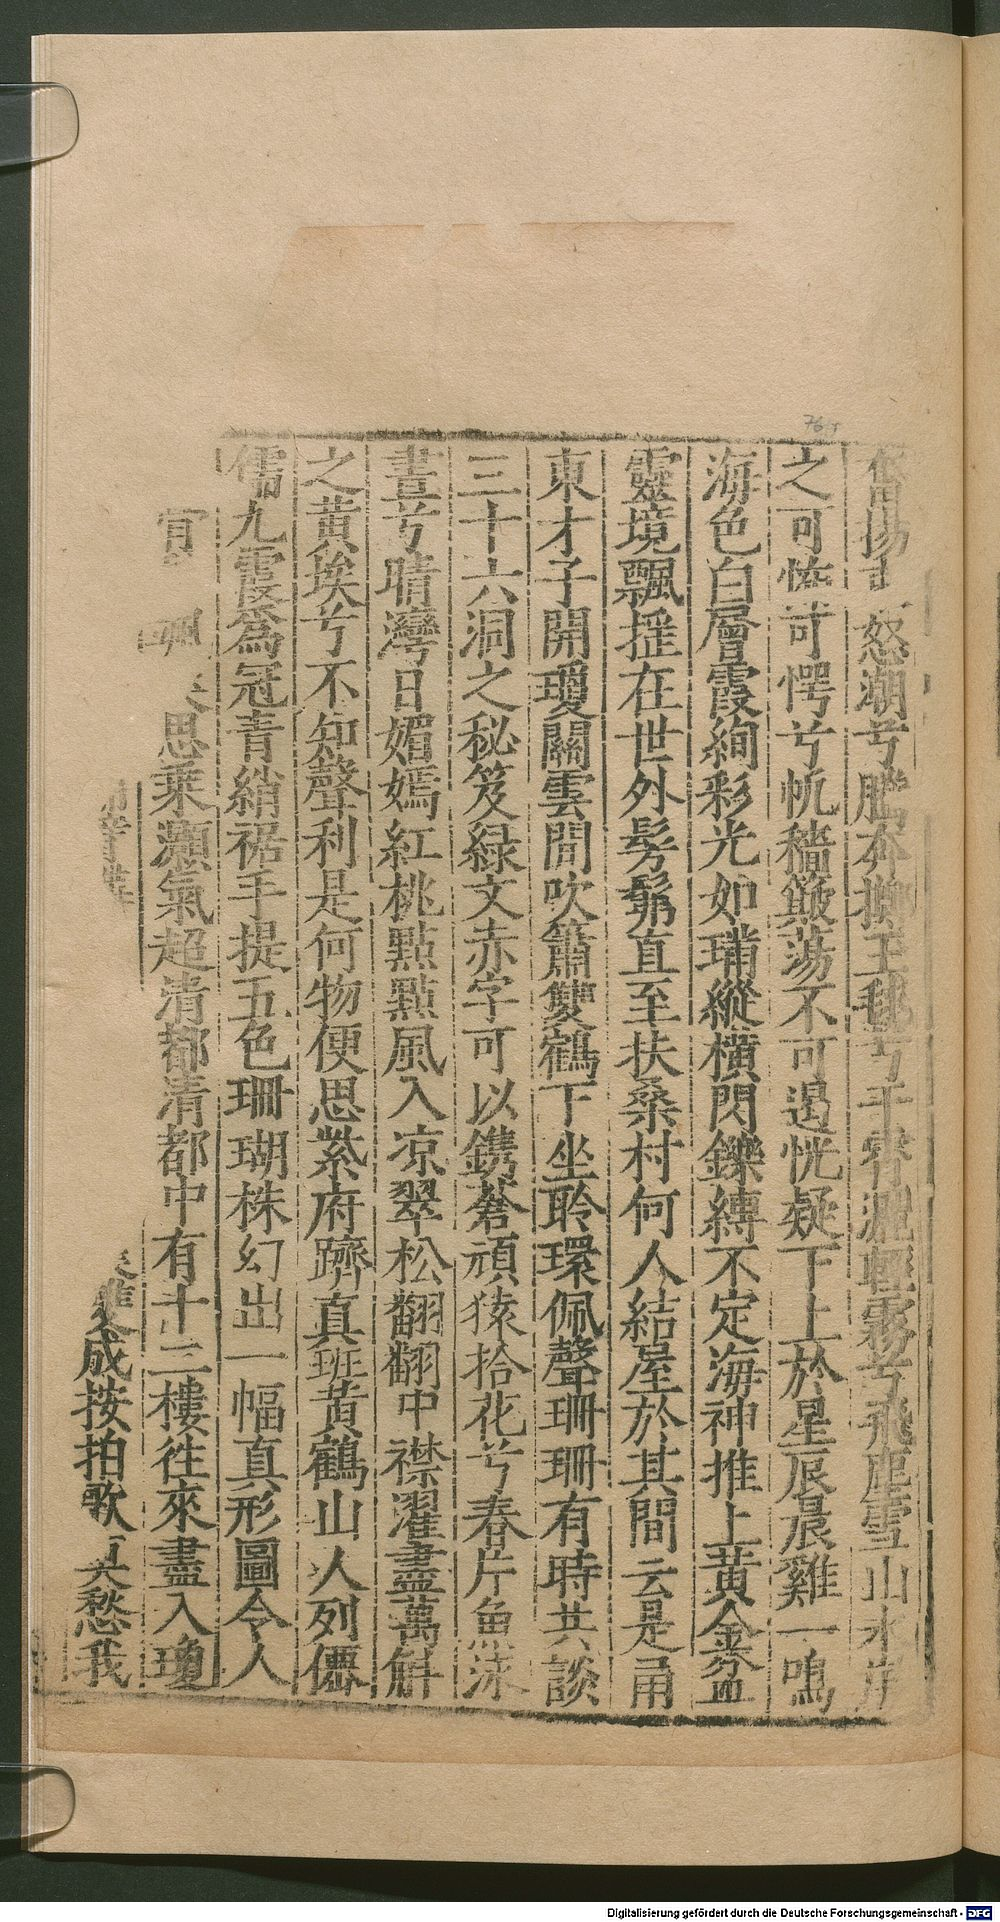 揚 怒潮兮騰 玉 兮 輕霧兮飛塵雪山水岸
之可怪可愕兮忼穡簸蕩不可遏恍疑下上於星辰晨雞一鳴
海色白層霞絢彩光如璊縱橫閃鑠縳不定海神推上黃金盆
靈境飄揺在世外髣髴直至扶桑村何人結屋於其間云是甬
東才子開瓊關雲間吹簫雙鶴下坐聆環佩聲珊珊有時共談
三十六洞之秘笈綠文赤字可以鐫蒼頑猿拾花兮春片魚沫
晝兮晴灣日媚嫣紅桃點點風入凉翠松翻翻中襟濯盡萬斛
之黃埃兮不知聲利是何物便思紫府躋真班黃鶴山人列僊
儒九霞爲冠青綃裾手提五色珊瑚株幻出一幅真形圖令人
思乘灝氣超清都清都中有十二樓徃來盡入瓊
雙成按拍歌 莫愁我
76
Digitalisierung gefördert durch die Deutsche Forschungsgemeinschaft - DFG